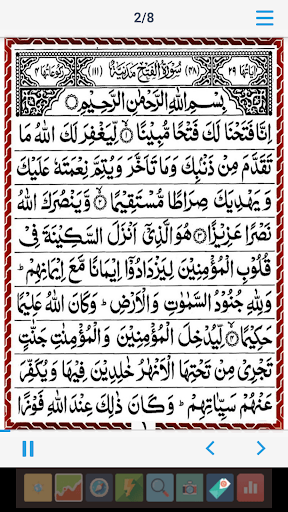 2/8
اٰیاتھا ۲۹ (۴۸) سُوْرَةُ الْفَتْحِ مَدَنِيَّةٌ (۱۱۱) رکوعاتھا ۴
بِسْمِ اللهِ الرَّحْمٰنِ الرَّحِيْمِ
اِنَّا فَتَحْنَا لَكَ فَتْحًا مُّبِيْنًا ۙ۱ لِّيَغْفِرَ لَكَ اللهُ مَا
تَقَدَّمَ مِنْ ذَنْۢبِكَ وَمَا تَاَخَّرَ وَيُتِمَّ نِعْمَتَهٗ عَلَيْكَ
وَيَهْدِيَكَ صِرَاطًا مُّسْتَقِيْمًا ۙ۲ وَّيَنْصُرَكَ اللهُ
نَصْرًا عَزِيْزًا ۳ هُوَ الَّذِيْٓ اَنْزَلَ السَّكِيْنَةَ فِيْ
قُلُوْبِ الْمُؤْمِنِيْنَ لِيَزْدَادُوْٓا اِيْمَانًا مَّعَ اِيْمَانِهِمْ ؕ
وَلِلّٰهِ جُنُوْدُ السَّمٰوٰتِ وَالْاَرْضِ ؕ وَكَانَ اللهُ عَلِيْمًا
حَكِيْمًا ۙ۴ لِّيُدْخِلَ الْمُؤْمِنِيْنَ وَالْمُؤْمِنٰتِ جَنّٰتٍ
تَجْرِيْ مِنْ تَحْتِهَا الْاَنْهٰرُ خٰلِدِيْنَ فِيْهَا وَيُكَفِّرَ
عَنْهُمْ سَيِّاٰتِهِمْ ؕ وَكَانَ ذٰلِكَ عِنْدَ اللهِ فَوْزًا
۱